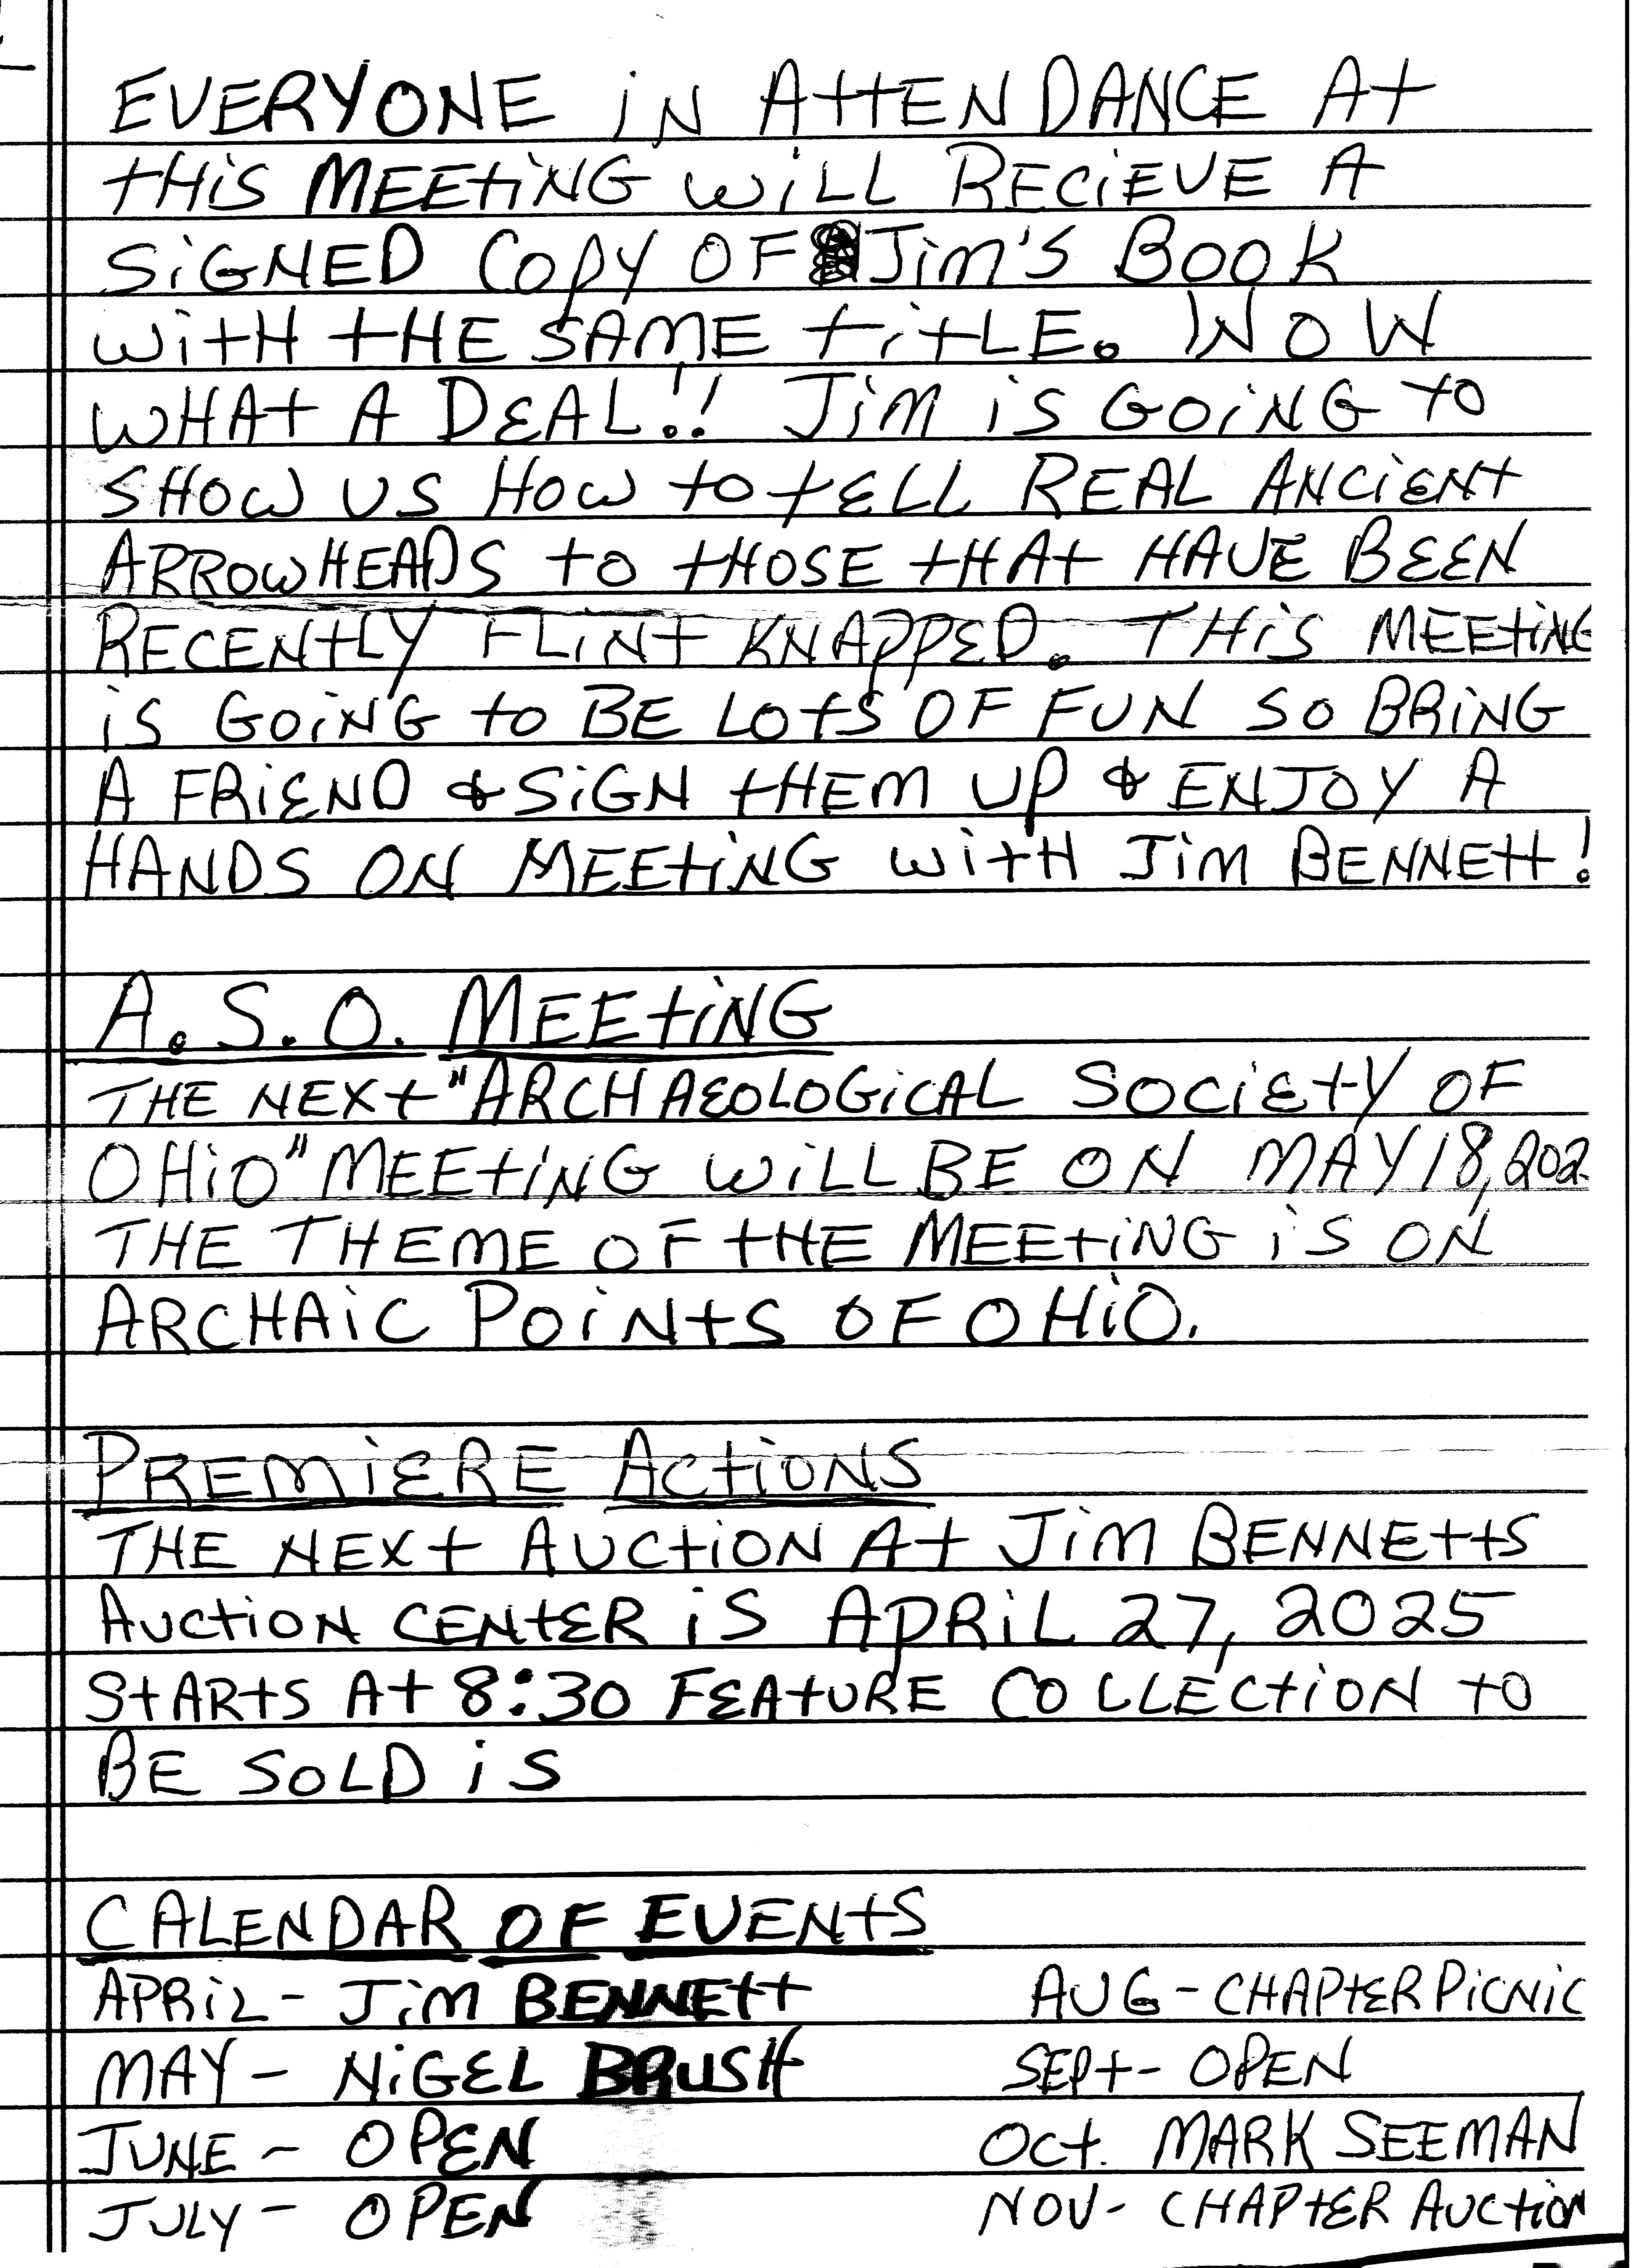 EVERYONE iN AttENDANCE At
tHiS MEEtiNG WiLL RECiEVE A
SiGNED COPY OF JiM'S BOOK
WitH tHE SAME titLE. NOW
WHAt A DEAL!! JiM iS GOiNG tO
SHOW US HOW tO tELL REAL ANCiENt
ARROWHEADS tO tHOSE tHAt HAVE BEEN
RECENtLY FLiNt KNAPPED. THiS MEEtiNG
iS GOiNG tO BE LOtS OF FUN SO BRiNG
A FRiEND & SiGN tHEM UP & ENJOY A
HANDS ON MEEtiNG WitH JiM BENNEtt!
A.S.O. MEEtiNG
THE NEXt "ARCHAEOLOGiCAL SOCiEtY OF
OHiO" MEEtiNG WiLL BE ON MAY 18, 202
THE THEME OF tHE MEEtiNG iS ON
ARCHAiC POiNtS OF OHiO.
PREMiERE ActiONS
THE NEXt AUCtiON At JiM BENNEttS
AUCtiON CENtER iS APRiL 27, 2025
StARtS At 8:30 FEAtURE COLLECtiON tO
BE SOLD iS
CALENDAR OF EVENtS
APRiL - JiM BENNEtt AUG - CHAPtER PiCNiC
MAY - NiGEL BRUSH SEPt - OPEN
JUNE - OPEN OCt. MARK SEEMAN
JULY - OPEN NOV - CHAPtER AUCtiON